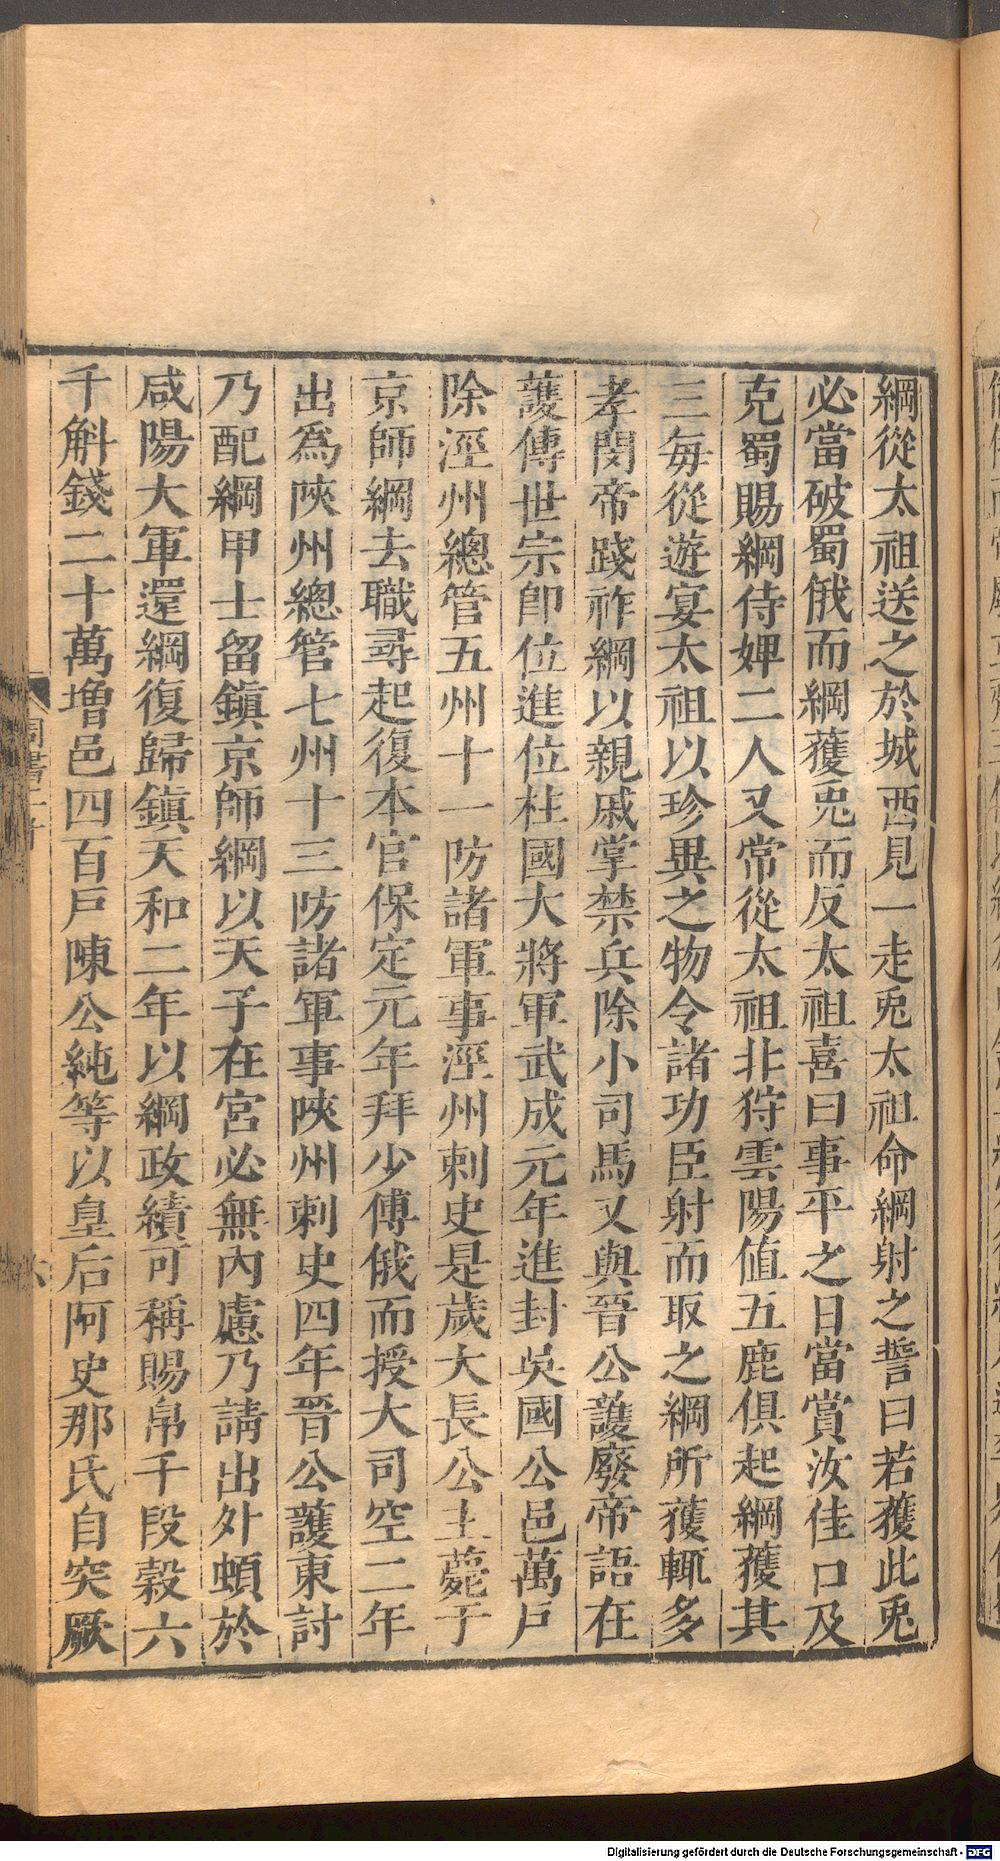 綱從太祖送之於城西見一走兎太祖命綱射之誓曰若獲此兎
必當破蜀俄而綱獲兎而反太祖喜曰事平之日當賞汝佳口及
克蜀賜綱侍婢二人又常從太祖北狩雲陽值五鹿俱起綱獲其
三每從遊宴太祖以珍異之物令諸功臣射而取之綱所獲輒多
孝閔帝踐祚綱以親戚掌禁兵除小司馬又與晉公護廢帝語在
護傳世宗卽位進位柱國大將軍武成元年進封吳國公邑萬戸
除涇州總管五州十一防諸軍事涇州刺史是歲大長公主薨于
京師綱去職尋起復本官保定元年拜少傅俄而授大司空二年
出爲陜州總管七州十三防諸軍事陜州刺史四年晉公護東討
乃配綱甲士留鎭京師綱以天子在宮必無內慮乃請出外頓於
咸陽大軍還綱復歸鎭天和二年以綱政績可稱賜帛千段穀六
千斛錢二十萬增邑四百戸陳公純等以皇后阿史那氏自突厥
Digitalisierung gefördert durch die Deutsche Forschungsgemeinschaft - DFG